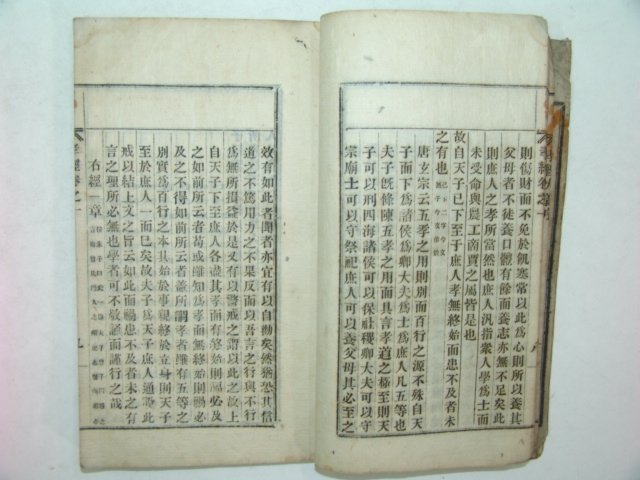 則傷財而不免於飢寒常以此爲心則所以養其
父母者不徒養口體有餘而養志亦無不足矣此
則庶人之孝所當然也庶人汎指衆人學爲士而
未受命與農工商賈之屬皆是也
故自天子已下至于庶人孝無終始而患不及者未
之有也 已下二字今文
唐玄宗云五孝之用則別而百行之源不殊自天
子而下爲諸侯爲卿大夫爲士爲庶人凡五等也
夫子旣條陳五孝之用而具言孝道之極至則天
子可以刑四海諸侯可以保社稷卿大夫可以守
宗廟士可以守祭祀庶人可以養父母其必至之
效有如此者聞者亦宜有以自勸矣然猶恐其信
道之不篤用力之不果反而以吾言之行與不行
爲無所損益於是又有以警戒之謂以此之故上
自天子下至於庶人各盡其孝而
之如前所云者苟或雖知爲孝而無終始則禍必
及之不得如前所云者蓋所謂孝者雖有五等之
別實爲百行之本其始於事親終於立身則天子
至於庶人一而已矣故夫子爲天子庶人通設此
戒以結上文之旨云如此而禍患不及者未之有
言之理所必無也學者可不敬誦而謹行之哉
右經一章
孝經卷之一